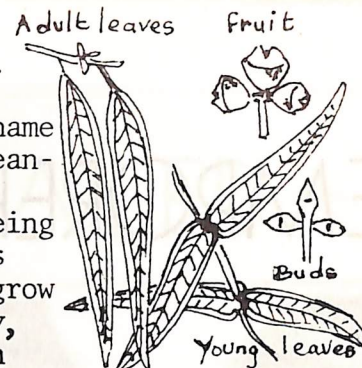 Adult leaves
Fruit
name
ean-
eing
s
grow
y,
n
Buds
Young leaves